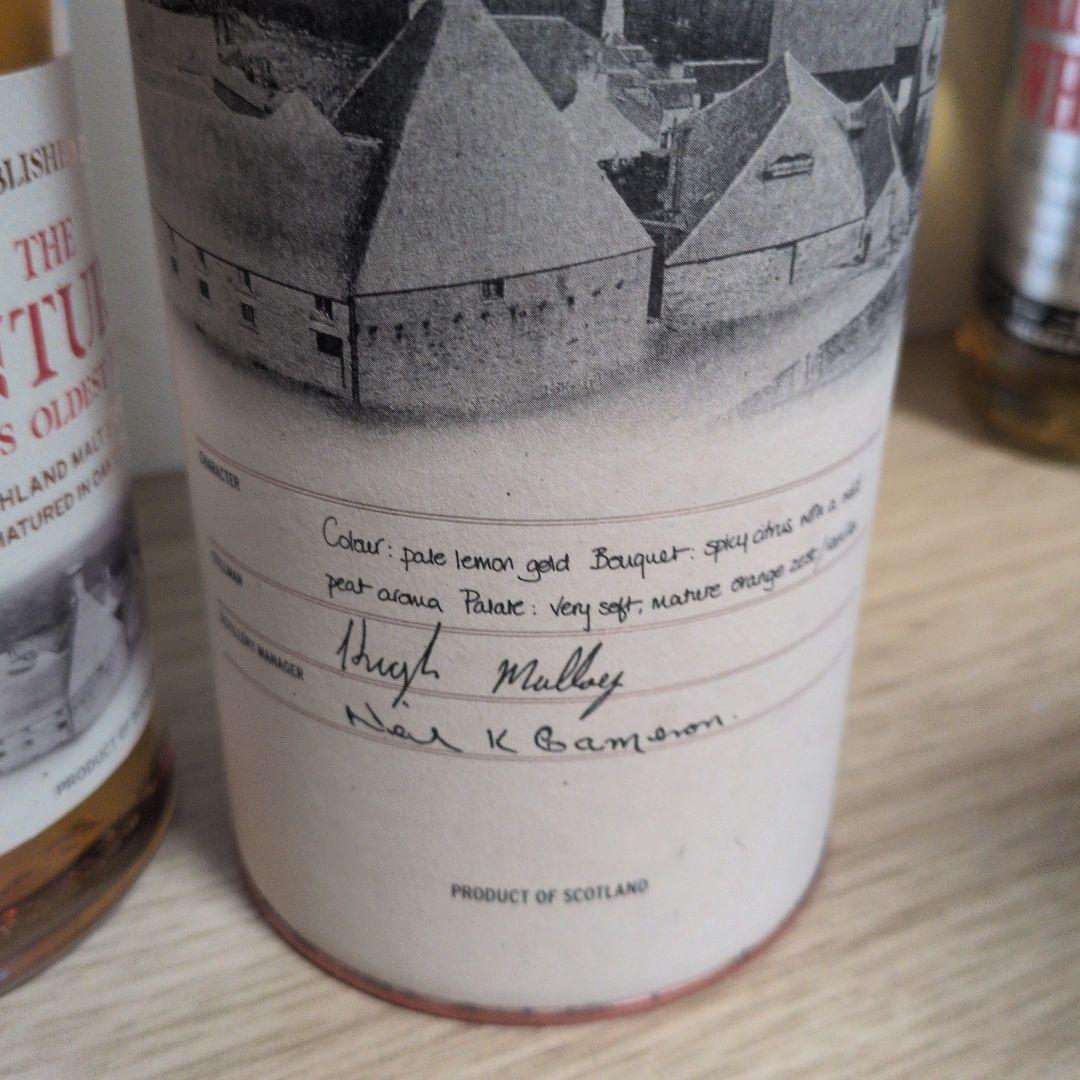 THE
S OLDEST
HLAND MALT
MATURED IN OAK
PRODUCT OF
CHARACTER
Colour: pale lemon gold Bouquet: spicy citrus with a mild
peat aroma Palate: very soft, mature orange zest/vanilla
STILLMAN
Hugh Mulloy
DISTILLERY MANAGER
Neil K Cameron.
PRODUCT OF SCOTLAND